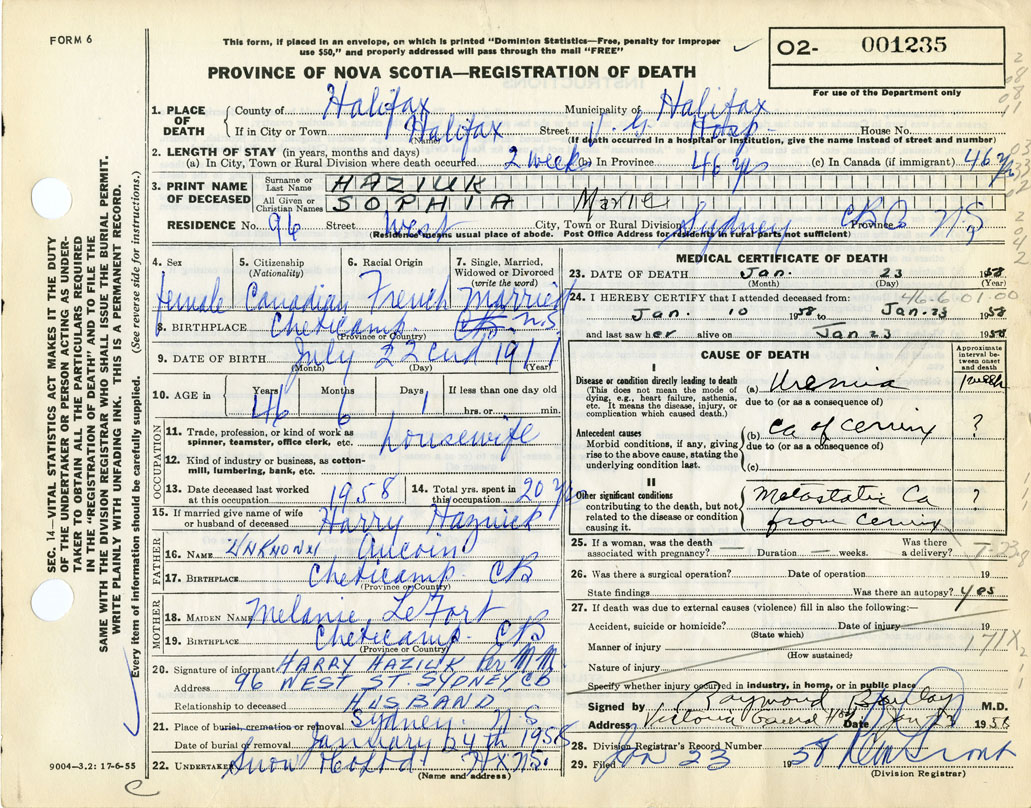 FORM 6
This form, if placed in an envelope, on which is printed "Dominion Statistics—Free, penalty for improper
use $50," and properly addressed will pass through the mail "FREE"
02- 001235
For use of the Department only
PROVINCE OF NOVA SCOTIA—REGISTRATION OF DEATH
SEC. 14—VITAL STATISTICS ACT MAKES IT THE DUTY
OF THE UNDERTAKER OR PERSON ACTING AS UNDER-
TAKER TO OBTAIN ALL THE PARTICULARS REQUIRED
IN THE "REGISTRATION OF DEATH" AND TO FILE THE
SAME WITH THE DIVISION REGISTRAR WHO SHALL ISSUE THE BURIAL PERMIT.
WRITE PLAINLY WITH UNFADING INK. THIS IS A PERMANENT RECORD.
Every item of information should be carefully supplied. (See reverse side for instructions.)
1. PLACE OF DEATH
County of Halifax Municipality of Halifax
If in City or Town Halifax Street V. G. Hosp- House No.
(Name) (If death occurred in a hospital or institution, give the name instead of street and number)
2. LENGTH OF STAY (in years, months and days)
(a) In City, Town or Rural Division where death occurred 2 weeks (b) In Province 46 yrs (c) In Canada (if immigrant) 46 yrs
3. PRINT NAME OF DECEASED
Surname or Last Name HAZIUK
All Given or Christian Names SOPHIA Marie
RESIDENCE No. 96 Street West City, Town or Rural Division Sydney CB Province N S
(Residence means usual place of abode. Post Office Address for residents in rural parts not sufficient)
4. Sex
female
5. Citizenship (Nationality)
Canadian
6. Racial Origin
French
7. Single, Married, Widowed or Divorced (write the word)
Married
8. BIRTHPLACE Cheticamp. CB. N.S
(Province or Country)
9. DATE OF BIRTH July 22end 1911
(Month) (Day) (Year)
10. AGE in Years 46 Months 6 Days 1 If less than one day old hrs. or min.
OCCUPATION
11. Trade, profession, or kind of work as spinner, teamster, office clerk, etc. housewife
12. Kind of industry or business, as cotton-mill, lumbering, bank, etc.
13. Date deceased last worked at this occupation 1958
14. Total yrs. spent in this occupation 20 yrs
15. If married give name of wife or husband of deceased Harry Haziuck
FATHER
16. NAME UNKNOWN Aucoin
17. BIRTHPLACE Cheticamp. CB
(Province or Country)
MOTHER
18. MAIDEN NAME Melanie LeFort
19. BIRTHPLACE Cheticamp. CB
(Province or Country)
20. Signature of informant HARRY HAZIUK Per M M
Address 96 WEST ST. SYDNEY. CB
Relationship to deceased HUSBAND
21. Place of burial, cremation or removal Sydney. N S
Date of burial or removal January 24th 1958
22. UNDERTAKER Snow HX NS.
(Name and address)
9004—3.2: 17-6-55
MEDICAL CERTIFICATE OF DEATH
23. DATE OF DEATH Jan. 23 1958
(Month) (Day) (Year)
24. I HEREBY CERTIFY that I attended deceased from: 46-6-01-00
Jan. 10 1958 Jan. 23 1958
and last saw her alive on Jan 23 1958
CAUSE OF DEATH
Approximate interval between onset and death
I
Disease or condition directly leading to death
(This does not mean the mode of dying, e.g., heart failure, asthenia, etc. It means the disease, injury, or complication which caused death.)
(a) Uremia 1 week
due to (or as a consequence of)
Antecedent causes
Morbid conditions, if any, giving rise to the above cause, stating the underlying condition last.
(b) Ca of cervix ?
due to (or as a consequence of)
(c)
II
Other significant conditions
contributing to the death, but not related to the disease or condition causing it.
Metastatic Ca ?
from cervix
25. If a woman, was the death associated with pregnancy? — Duration — weeks. Was there a delivery?
26. Was there a surgical operation? Date of operation 19
State findings Was there an autopsy? yes
27. If death was due to external causes (violence) fill in also the following:—
Accident, suicide or homicide? Date of injury 19
(State which)
Manner of injury 171X
(How sustained)
Nature of injury
Specify whether injury occurred in industry, in home, or in public place
Signed by Raymond M.D.
Address Victoria General Hosp Date Jan 1958
28. Division Registrar's Record Number
29. Filed Jan 23 1958
(Division Registrar)